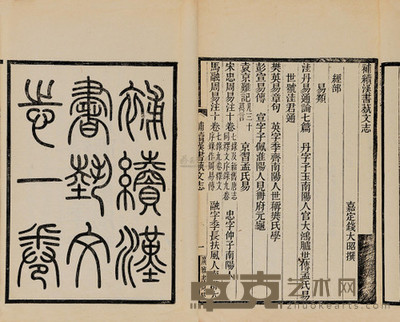 補續漢書藝文志
嘉定錢大昭撰
經部
易類
洼丹易通論七篇 丹字子玉南陽人官大鴻臚世傳孟氏易
世號洼君通
樊英易章句 英字季齊南陽人世稱樊氏學
彭宣易傳 宣字子佩淮陽人見冊府元龜
袁京難記 京習孟氏易
宋忠周易注十卷 忠字仲子南陽人
馬融周易注十卷 融字季長扶風人
補續漢書藝文志
一
補續漢
書藝文
志一卷